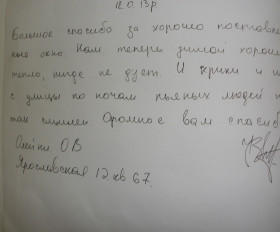 12.0.13р
Большое спасибо за хорошо поставлен
ные окна. Нам теперь зимой хорошо
тепло, нигде не дует. И крики и
с улицы по ночам пьяных людей
Огромное вам спасиб
О В
Ярославская 12 кв 67.